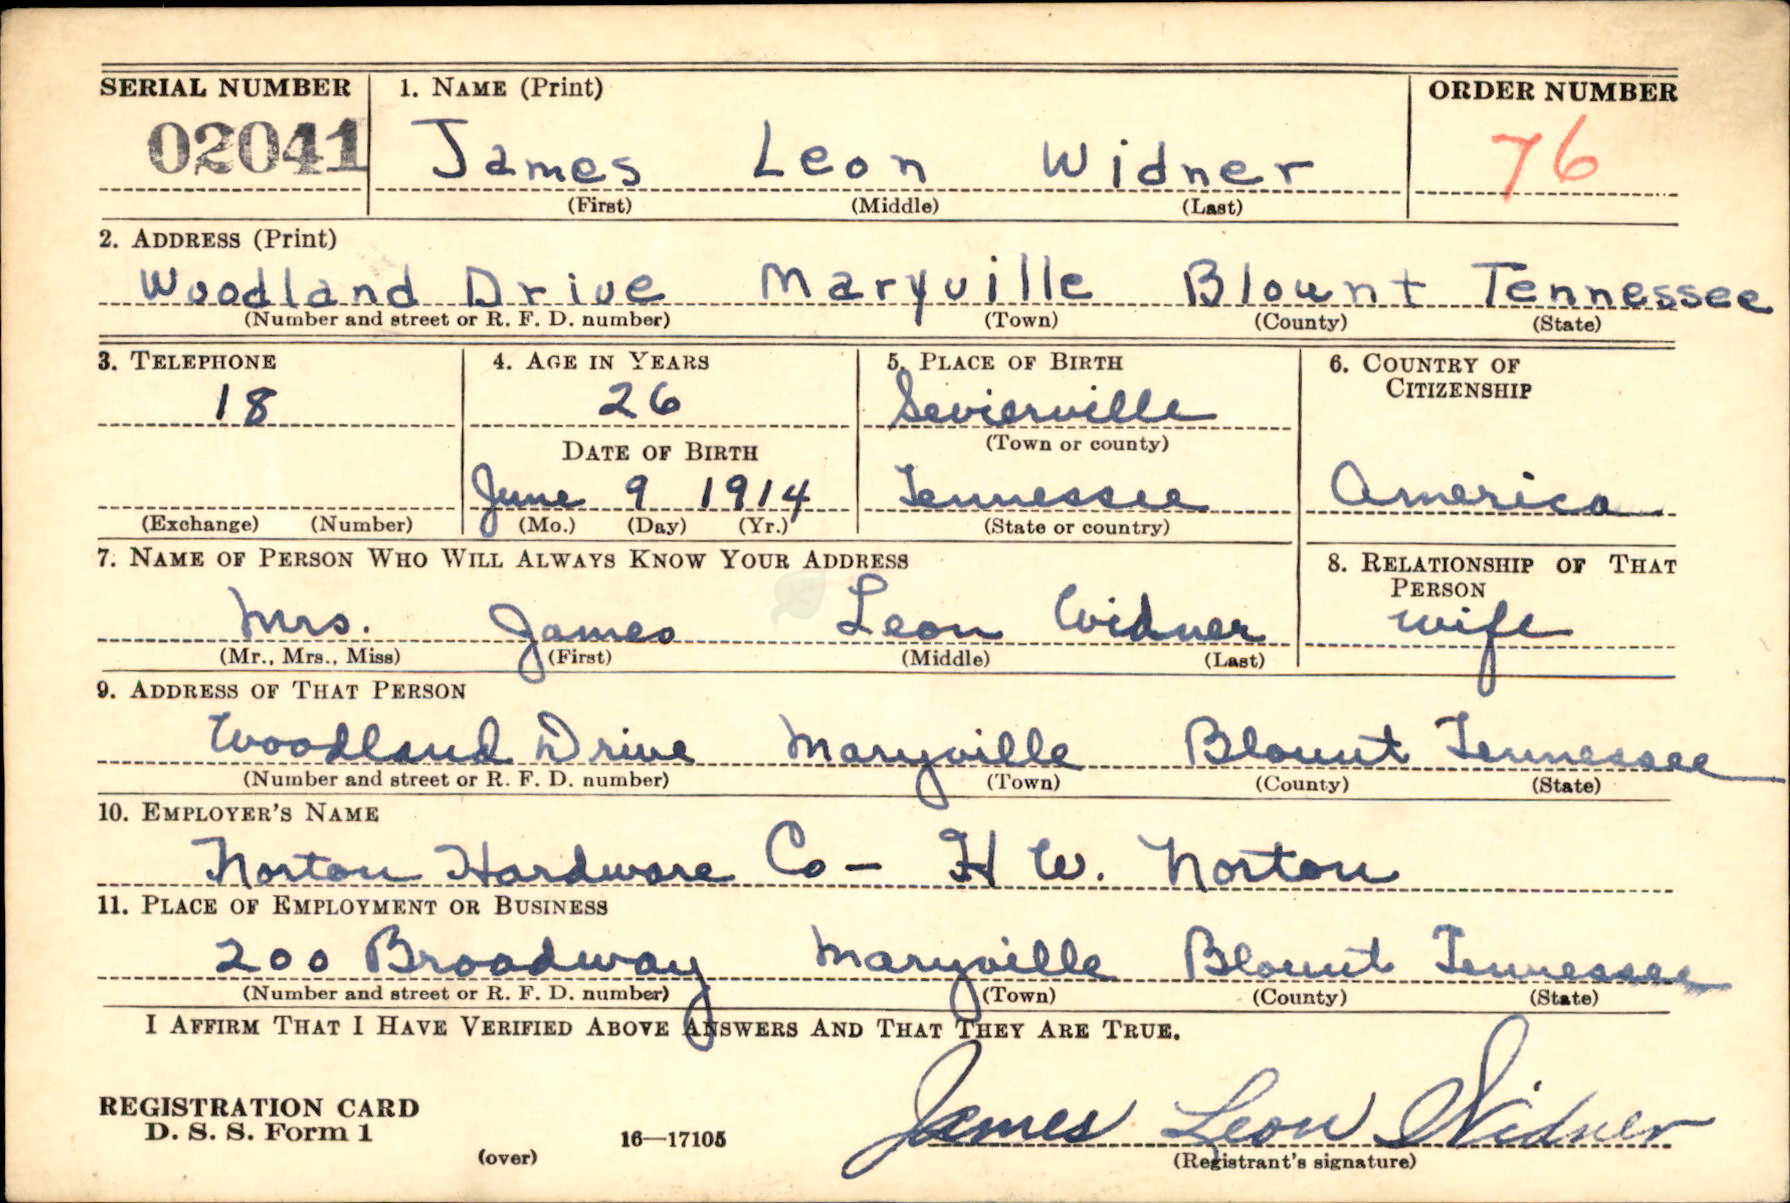 SERIAL NUMBER 1. NAME (Print) ORDER NUMBER
02041 James Leon Widner 76
(First) (Middle) (Last)
2. ADDRESS (Print)
Woodland Drive Maryville Blount Tennessee
(Number and street or R. F. D. number) (Town) (County) (State)
3. TELEPHONE 4. AGE IN YEARS 5. PLACE OF BIRTH 6. COUNTRY OF CITIZENSHIP
18 26 Sevierville
DATE OF BIRTH (Town or county)
June 9 1914 Tennessee America
(Exchange) (Number) (Mo.) (Day) (Yr.) (State or country)
7. NAME OF PERSON WHO WILL ALWAYS KNOW YOUR ADDRESS 8. RELATIONSHIP OF THAT PERSON
Mrs. James Leon Widner wife
(Mr., Mrs., Miss) (First) (Middle) (Last)
9. ADDRESS OF THAT PERSON
Woodland Drive Maryville Blount Tennessee
(Number and street or R. F. D. number) (Town) (County) (State)
10. EMPLOYER'S NAME
Norton Hardware Co - H W. Norton
11. PLACE OF EMPLOYMENT OR BUSINESS
200 Broadway Maryville Blount Tennessee
(Number and street or R. F. D. number) (Town) (County) (State)
I AFFIRM THAT I HAVE VERIFIED ABOVE ANSWERS AND THAT THEY ARE TRUE.
REGISTRATION CARD
D. S. S. Form 1 James Leon Widner
(over) 16—17105 (Registrant's signature)